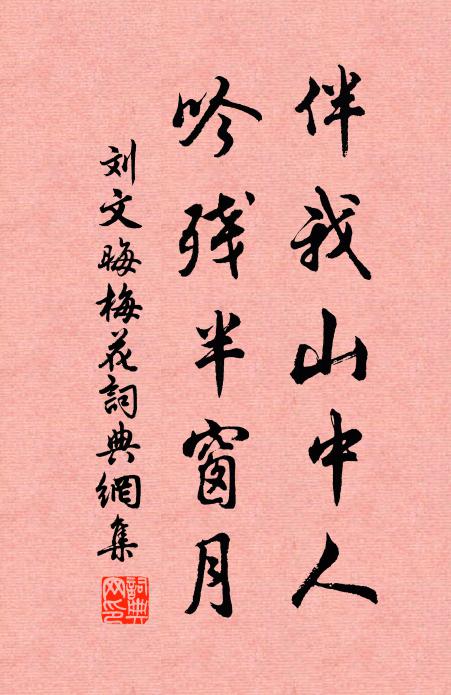 伴我山中人
吟残半窗月
刘文晦梅花詞典網集
詞典
网印